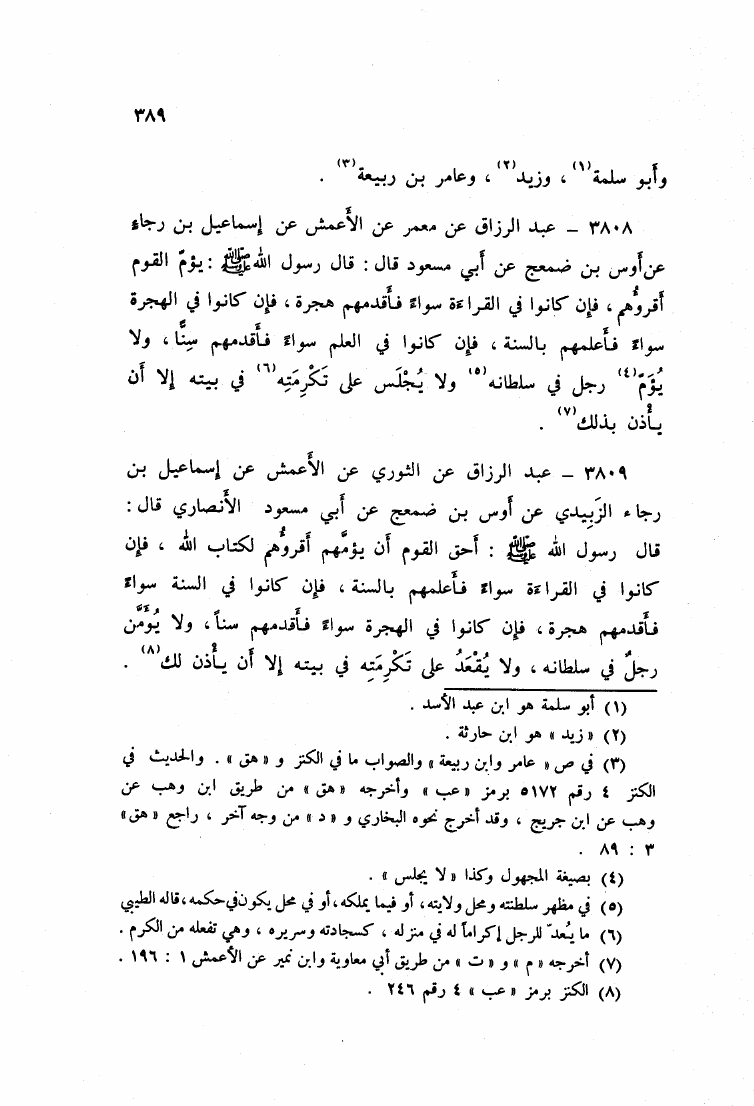 ٣٨٩
وأبو سلمة(١) ، وزيد(٢) ، وعامر بن ربيعة(٣) .
٣٨٠٨ – عبد الرزاق عن معمر عن الأَعمش عن إسماعيل بن رجاءٍ
عن أوس بن ضمعج عن أَبي مسعود قال : قال رسول الله ﷺ : يؤمّ القوم
أَقروُهم ، فإن كانوا في القراءة سواءً فأَقدمهم هجرة ، فإن كانوا في الهجرة
سواءً فأَعلمهم بالسنة ، فإن كانوا في العلم سواءً فأَقدمهم سِنًّا ، ولا
يُؤَمّ(٤) رجل في سلطانه(٥) ولا يُجْلَس على تَكْرِمَتِه(٦) في بيته إلا أن
يأْذن بذلك(٧) .
٣٨٠٩ – عبد الرزاق عن الثوري عن الأعمش عن إسماعيل بن
رجاء الزَبِيدي عن أوس بن ضمعج عن أَبي مسعود الأَنصاري قال :
قال رسول الله ﷺ : أحق القوم أن يؤمَّهم أقروُهم لكتاب الله ، فإن
كانوا في القراءة سواءً فأَعلمهم بالسنة ، فإن كانوا في السنة سواءً
فأَقدمهم هجرة ، فإن كانوا في الهجرة سواءً فأَقدمهم سناً ، ولا يُؤَمَّن
رجلٌ في سلطانه ، ولا يُقْعَدُ على تَكْرِمَتِه في بيته إلا أن يأْذن لك(٨) .
(١) أبو سلمة هو ابن عبد الأسد .
(٢) « زيد » هو ابن حارثة .
(٣) في ص « عامر وابن ربيعة » والصواب ما في الكنز و « هق » . والحديث في
الكنز ٤ رقم ٥١٧٢ برمز « عب » وأخرجه « هق » من طريق ابن وهب عن
وهب عن ابن جريج ، وقد أخرج نحوه البخاري و « د » من وجه آخر ، راجع « هق »
٣ : ٨٩ .
(٤) بصيغة المجهول وكذا « لا يجلس » .
(٥) في مظهر سلطنته ومحل ولايته ، أو فيما يملكه ، أو في محل يكون في حكمه ، قاله الطيبي
(٦) ما يُعدّ للرجل إكراماً له في منزله ، كسجادته وسريره ، وهي تفعله من الكرم .
(٧) أخرجه « م » و « ت » من طريق أبي معاوية وابن نمير عن الأعمش ١ : ١٩٦ .
(٨) الكنز برمز « عب » ٤ رقم ٢٤٦ .